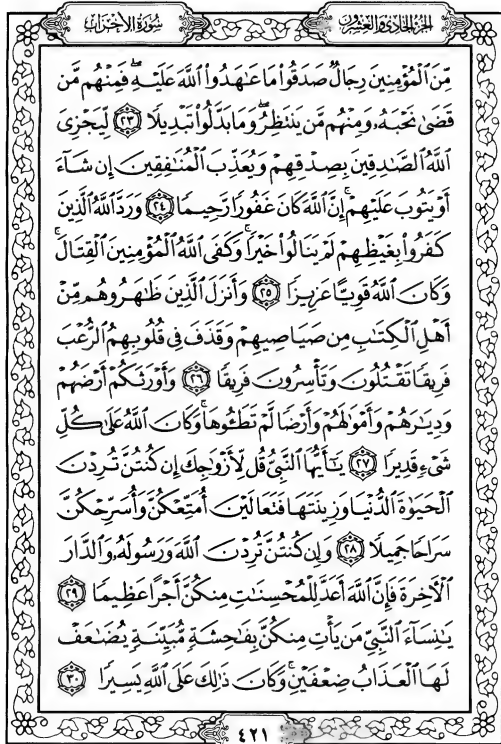 سُورَةُ الأَحْزَابِ
الجُزْءُ الحَادِي وَالعِشْرُونَ
مِّنَ ٱلْمُؤْمِنِينَ رِجَالٌ صَدَقُوا۟ مَا عَـٰهَدُوا۟ ٱللَّهَ عَلَيْهِ ۖ فَمِنْهُم مَّن
قَضَىٰ نَحْبَهُۥ وَمِنْهُم مَّن يَنتَظِرُ ۖ وَمَا بَدَّلُوا۟ تَبْدِيلًا ٢٣ لِّيَجْزِىَ
ٱللَّهُ ٱلصَّـٰدِقِينَ بِصِدْقِهِمْ وَيُعَذِّبَ ٱلْمُنَـٰفِقِينَ إِن شَآءَ
أَوْ يَتُوبَ عَلَيْهِمْ ۚ إِنَّ ٱللَّهَ كَانَ غَفُورًا رَّحِيمًا ٢٤ وَرَدَّ ٱللَّهُ ٱلَّذِينَ
كَفَرُوا۟ بِغَيْظِهِمْ لَمْ يَنَالُوا۟ خَيْرًا ۚ وَكَفَى ٱللَّهُ ٱلْمُؤْمِنِينَ ٱلْقِتَالَ ۚ
وَكَانَ ٱللَّهُ قَوِيًّا عَزِيزًا ٢٥ وَأَنزَلَ ٱلَّذِينَ ظَـٰهَرُوهُم مِّنْ
أَهْلِ ٱلْكِتَـٰبِ مِن صَيَاصِيهِمْ وَقَذَفَ فِى قُلُوبِهِمُ ٱلرُّعْبَ
فَرِيقًا تَقْتُلُونَ وَتَأْسِرُونَ فَرِيقًا ٢٦ وَأَوْرَثَكُمْ أَرْضَهُمْ
وَدِيَـٰرَهُمْ وَأَمْوَٰلَهُمْ وَأَرْضًا لَّمْ تَطَـُٔوهَا ۚ وَكَانَ ٱللَّهُ عَلَىٰ كُلِّ
شَىْءٍ قَدِيرًا ٢٧ يَـٰٓأَيُّهَا ٱلنَّبِىُّ قُل لِّأَزْوَٰجِكَ إِن كُنتُنَّ تُرِدْنَ
ٱلْحَيَوٰةَ ٱلدُّنْيَا وَزِينَتَهَا فَتَعَالَيْنَ أُمَتِّعْكُنَّ وَأُسَرِّحْكُنَّ
سَرَاحًا جَمِيلًا ٢٨ وَإِن كُنتُنَّ تُرِدْنَ ٱللَّهَ وَرَسُولَهُۥ وَٱلدَّارَ
ٱلْـَٔاخِرَةَ فَإِنَّ ٱللَّهَ أَعَدَّ لِلْمُحْسِنَـٰتِ مِنكُنَّ أَجْرًا عَظِيمًا ٢٩
يَـٰنِسَآءَ ٱلنَّبِىِّ مَن يَأْتِ مِنكُنَّ بِفَـٰحِشَةٍ مُّبَيِّنَةٍ يُضَـٰعَفْ
لَهَا ٱلْعَذَابُ ضِعْفَيْنِ ۚ وَكَانَ ذَٰلِكَ عَلَى ٱللَّهِ يَسِيرًا ٣٠
٤٢١